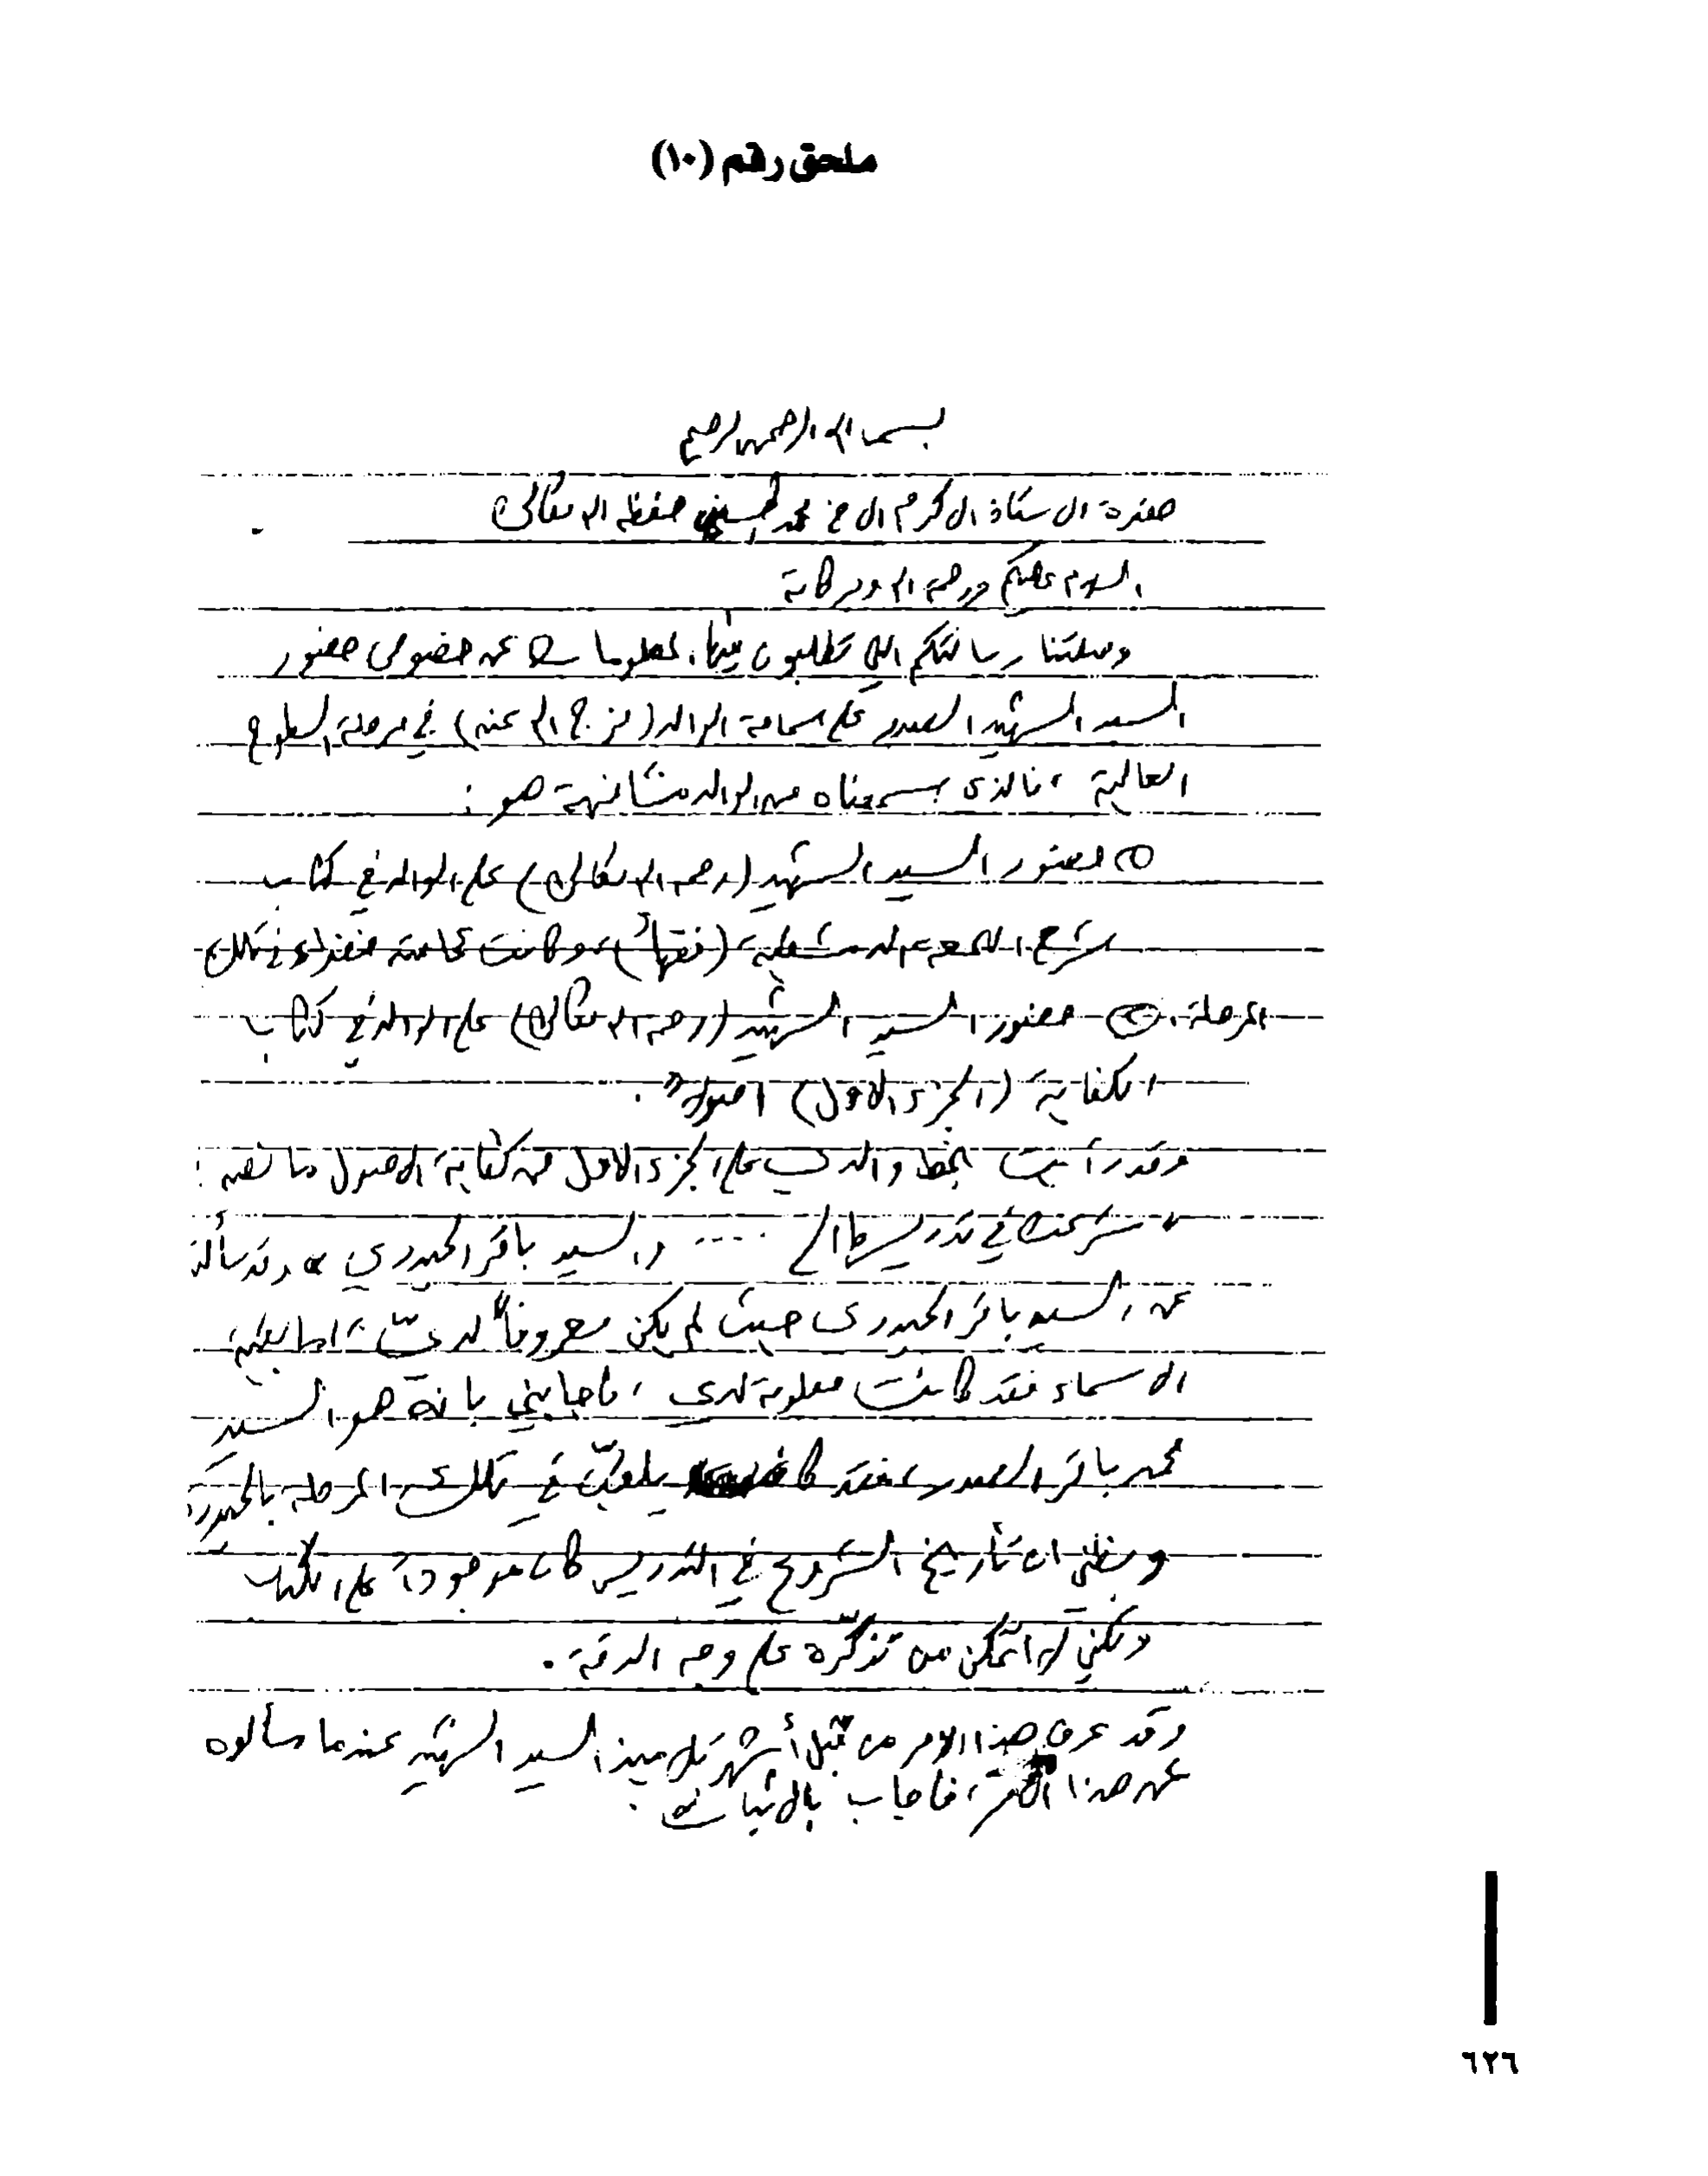 ملحق رقم (١٠)
بسم الله الرحمن الرحيم
حضرة الاستاذ الاكرم الاخ محمد الحسيني حفظه الله تعالى
السلام عليكم ورحمة الله وبركاته
وصلتنا رسالتكم التي تطلبون فيها معلومات عن خصوص حضور
السيد الشهيد الصدر على سماحة الوالد (فرج الله عنه) في مرحلة السطوح
العالية، فالذي سمعناه من الوالد مشافهة هو:
١ حضور السيد الشهيد (رحمه الله تعالى) على الوالد في كتاب
شرح اللمعة الدمشقية (فقهاً) وكانت خاصة في تلك
المرحلة. ٢ حضور السيد الشهيد (رحمه الله تعالى) على الوالد في كتاب
الكفاية (الجزء الاول) اصولاً.
وقد رأيت بخط والدي على الجزء الاول من كفاية الاصول ما نصه:
« شرعت في تدريس الى ..... والسيد باقر الحيدري » وقد سألته
عن السيد باقر الحيدري حيث لم يكن معروفاً لديّ، اما بقية
الاسماء فقد كانت معلومة لدي، فاجابني بانه هو السيد
محمد باقر الصدر، فقد كان يلقب في تلك المرحلة بالحيدري
وبظني ان تأريخ الشروع في التدريس كان موجوداً على الكتاب
ولكني لم اتمكن من تذكره على وجه الدقة.
وقد عرف هذا الامر من قبل أشهر تلاميذ السيد الشهيد عندما سألوه
عن هذا الامر، فاجاب بالاثبات.
٦٢٦